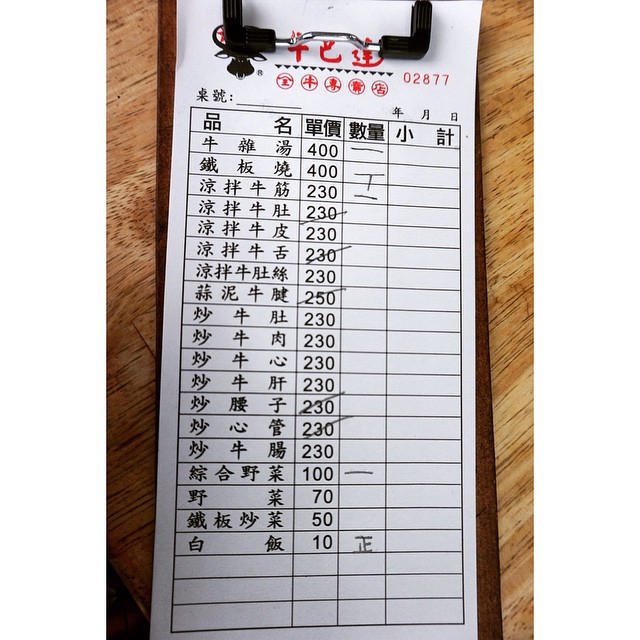 牛巴達
® 全牛專賣店 02877
桌號: 年 月 日
品名 單價 數量 小計
牛雜湯 400 一
鐵板燒 400 丅
涼拌牛筋 230 一
涼拌牛肚 230
涼拌牛皮 230
涼拌牛舌 230
涼拌牛肚絲 230
蒜泥牛腱 250
炒牛肚 230
炒牛肉 230
炒牛心 230
炒牛肝 230
炒腰子 230
炒心管 230
炒牛腸 230
綜合野菜 100 一
野菜 70
鐵板炒菜 50
白飯 10 正